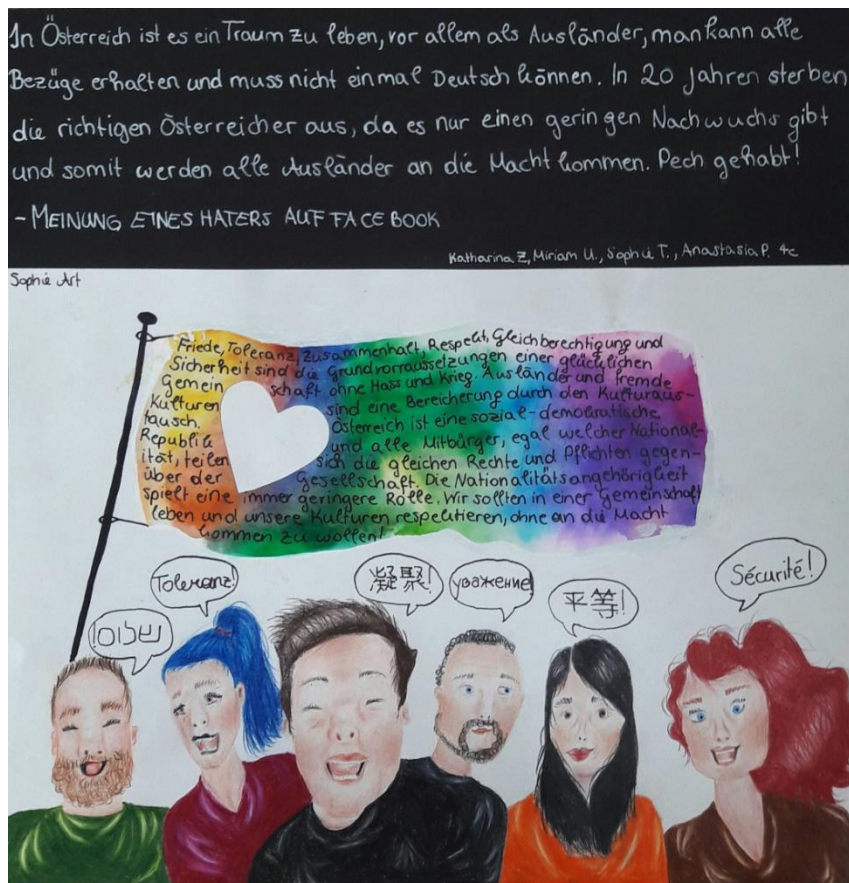 In Österreich ist es ein Traum zu leben, vor allem als Ausländer, man kann alle
Bezüge erhalten und muss nicht einmal Deutsch können. In 20 Jahren sterben
die richtigen Österreicher aus, da es nur einen geringen Nachwuchs gibt
und somit werden alle Ausländer an die Macht kommen. Pech gehabt!
- MEINUNG EINES HATERS AUF FACEBOOK
Katharina Z, Miriam U., Sophie T., Anastasia P. 4c
Sophie Art
Friede, Toleranz, Zusammenhalt, Respekt, Gleichberechtigung und
Sicherheit sind die Grundvorraussetzungen einer glücklichen
Gemeinschaft ohne Hass und Krieg. Ausländer und fremde
Kulturen sind eine Bereicherung durch den Kulturaus-
tausch. Österreich ist eine sozial-demokratische
Republik und alle Mitbürger, egal welcher National-
ität, teilen sich die gleichen Rechte und Pflichten gegen-
über der Gesellschaft. Die Nationalitätsangehörigkeit
spielt eine immer geringere Rolle. Wir sollten in einer Gemeinschaft
leben und unsere Kulturen respektieren, ohne an die Macht
kommen zu wollen!
שלום!
Toleranz!
凝聚!
уважение!
平等!
Sécurité!